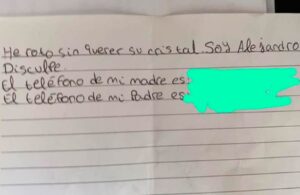 He roto sin querer su cristal. Soy Alejandro
Disculpe.
El teléfono de mi madre es:
El teléfono de mi Padre es: